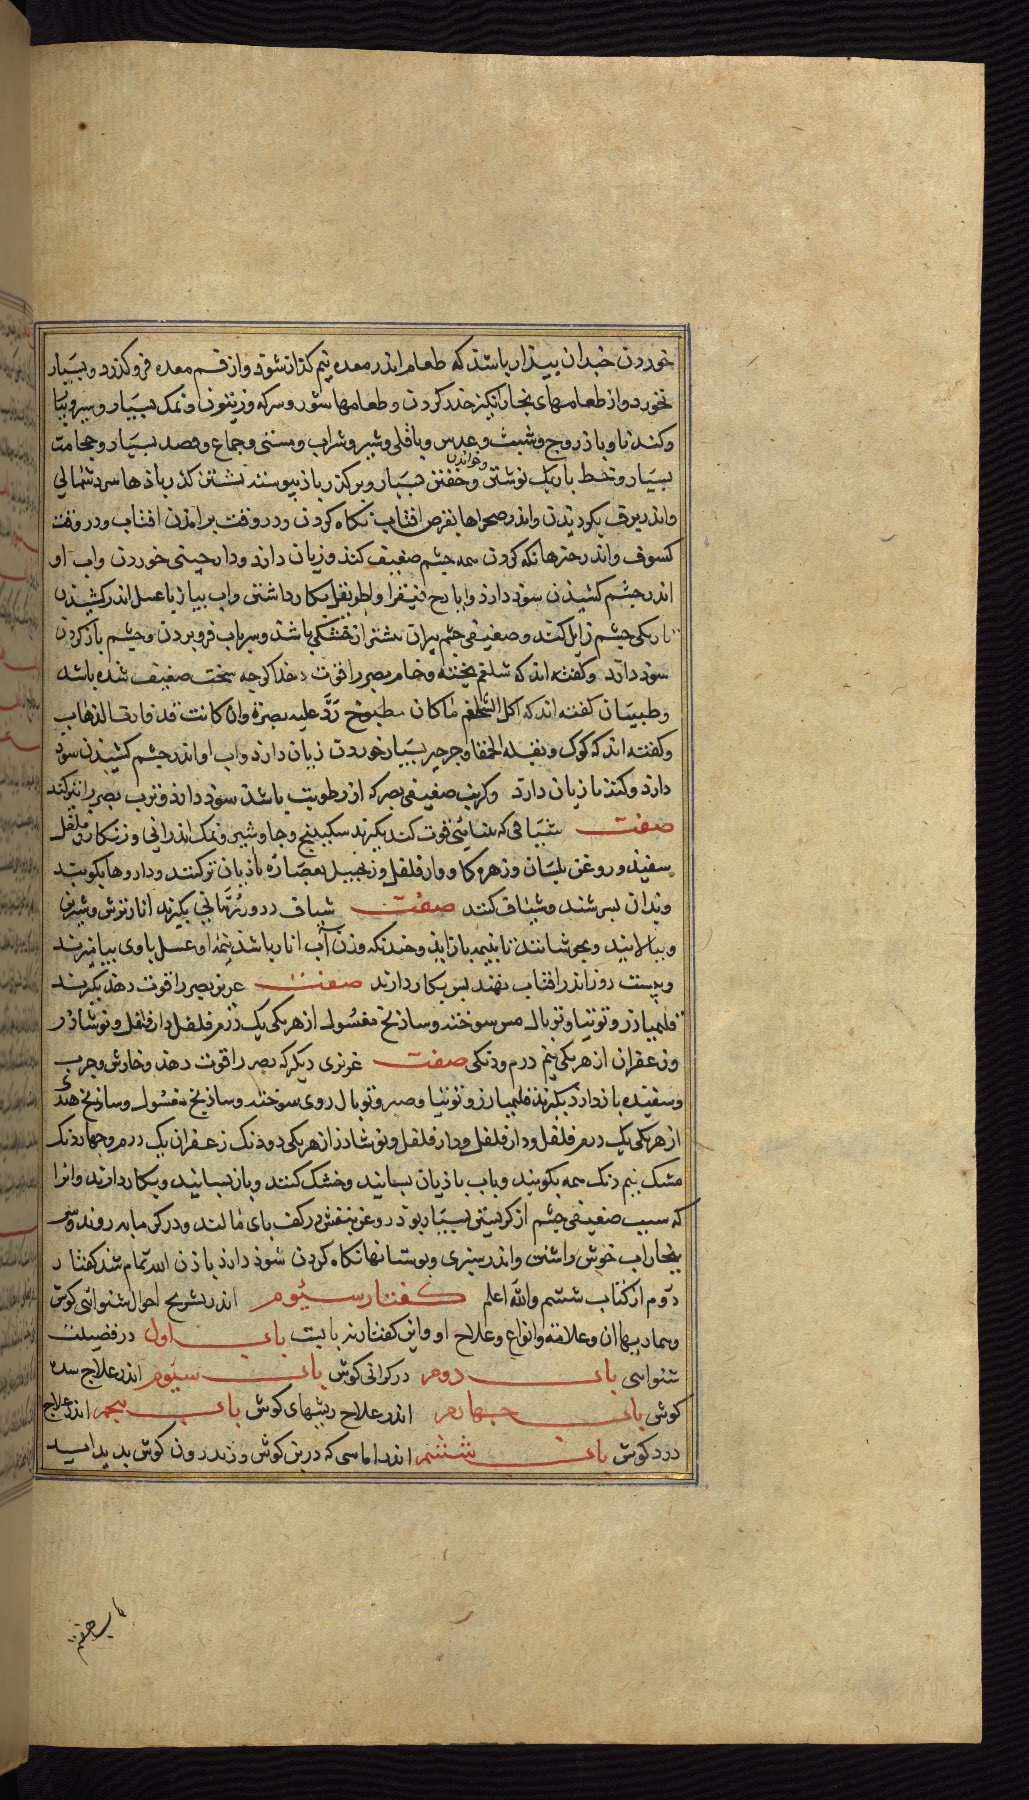 خوردن خبدان بیدار باشذ که طعام اندر معده نیم گذار شوذ و از قسم معده فرو گذرد و بسیار
نخورد و از طعامهای بخارانگیز حذر کردن و طعامها شور و سرکه و زیتون و نمک بسیار و سیر و پیا
و کندنا و باذروج و شبث و عدس و باقلی و شیر و شراب و مستی و جماع و فصد بسیار و حجامت
بسیار و خط باریک نوشتن و خواندن و خفتن بسیار و بر گذر باذ پیوسته نشستن گذر باذها سرد شمالی
و اندر برف نکردیدن و اندر صحراها بقرص افتاب نکاه کردن و در وقت برامدن افتاب و در وقت
کسوف و اندر چیزها نکه کردن همه چشم ضعیف کند و زیان دارد و دارچینی خوردن و اب او
اندر چشم کشیذن سوذ دارذ و ایارج فیقرا و اطریفل بکار داشتن و اب پیاز با عسل اندر کشیذن
تاریکی چشم زایل کند و ضعیفی چشم پیران بیشتر از خشکی باشذ و سر باب فرو بردن و چشم باز کردن
سوذ دارد و کفته اند که شلغم پخته و خام بصر را قوت دهد اکرچه سخت ضعیف شده باشد
و طبیبان کفته اند که اکل الشلغم ما کان مطبوخ رَدَّ علیه بصرَهُ وان کانت قد قارب الذهاب
و کفته اند که کوک و بقله الحمقا و جرجیر بسیار خوردن زیان دارذ و اب او اندر چشم کشیذن سوذ
دارد و کندنا زیان دارد و کرنب ضعیفی بصر که از رطوبت باشذ سوذ دارذ و ترب بصر را تیز کند
صفت شیافی که بینایی قوت کند بکیرند سکبینج و جاوشیر و نمک اندرانی و زنکار و فلفل
سفیذ و روغن بلسان و زهره کاو و دارفلفل و زنجبیل بعصاره باذیان تر کنند و داروها بکوبند
و بدان بسرشند و شیاف کنند صفت شیاف در ورُمّانی بکیرند انار ترش و شیرین
و بپالایند و بجوشانند تا بنیمه بازاید و چندنکه وزن آب انار باشد نیمه او عسل باوی بیامیزند
و بیست روز اندر افتاب نهند پس بکار دارند صفت عزیز بصر را قوت دهد بکیرند
قلیمیا زر و توتیا و توبال مس سوخته و ساذنج مغسول از هریکی یک درم فلفل دارفلفل و نوشاذر
و زعفران از هریکی نیم درم و دنکی صفت عزیزی دیکر که بصر را قوت دهد و خارش و جرب
و سفیده باز دارد بکیرند قلیمیا زر و توتیا و صبر و توبال روی سوخته و ساذنج مغسول و ساذج هندی
از هریکی یک درم فلفل و دارفلفل و دارفلفل و نوشاذر از هریکی دو دنک زعفران یک درم و چهار دنک
مشک نیم دنک همه بکوبند و باب باذیان بسایند و خشک کنند و باز بسایند و بکار دارند و انرا
که سبب ضعیفی چشم از کریستن بسیار بوذ روغن بنفش در کف پای مالند و در کرمابه روند و سر
ببخار اب خوش داشتن و اندر سبزی و بوستانها نکاه کردن سوذ دارد باذن الله تمام شد کفتار
دوم از کتاب ششم والله اعلم کفتار سیوم اندر تشریح احوال شنوائی کوش
و بیماریهاان و علامته وانواع و علاج او و این کفتار نه بابست باب اول در فضیلت
شنوائی باب دوم در کرانی کوش باب سیوم اندر علاج سده
کوش باب چهارم اندر علاج ریشهای کوش باب پنجم اندر علاج
درد کوش باب ششم اندر اماسی که در بن کوش و زبدرون کوش پدید اید
باب هفتم